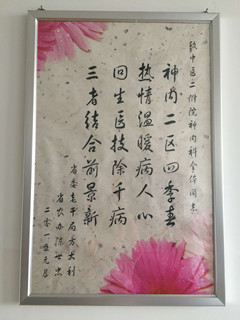 致中医二附院神内科全体同志
神内二区四季春
热情温暖病人心
回生医技除千病
三者结合前景新
省委老干局方大利
省农办陈世忠
二零一五元旦